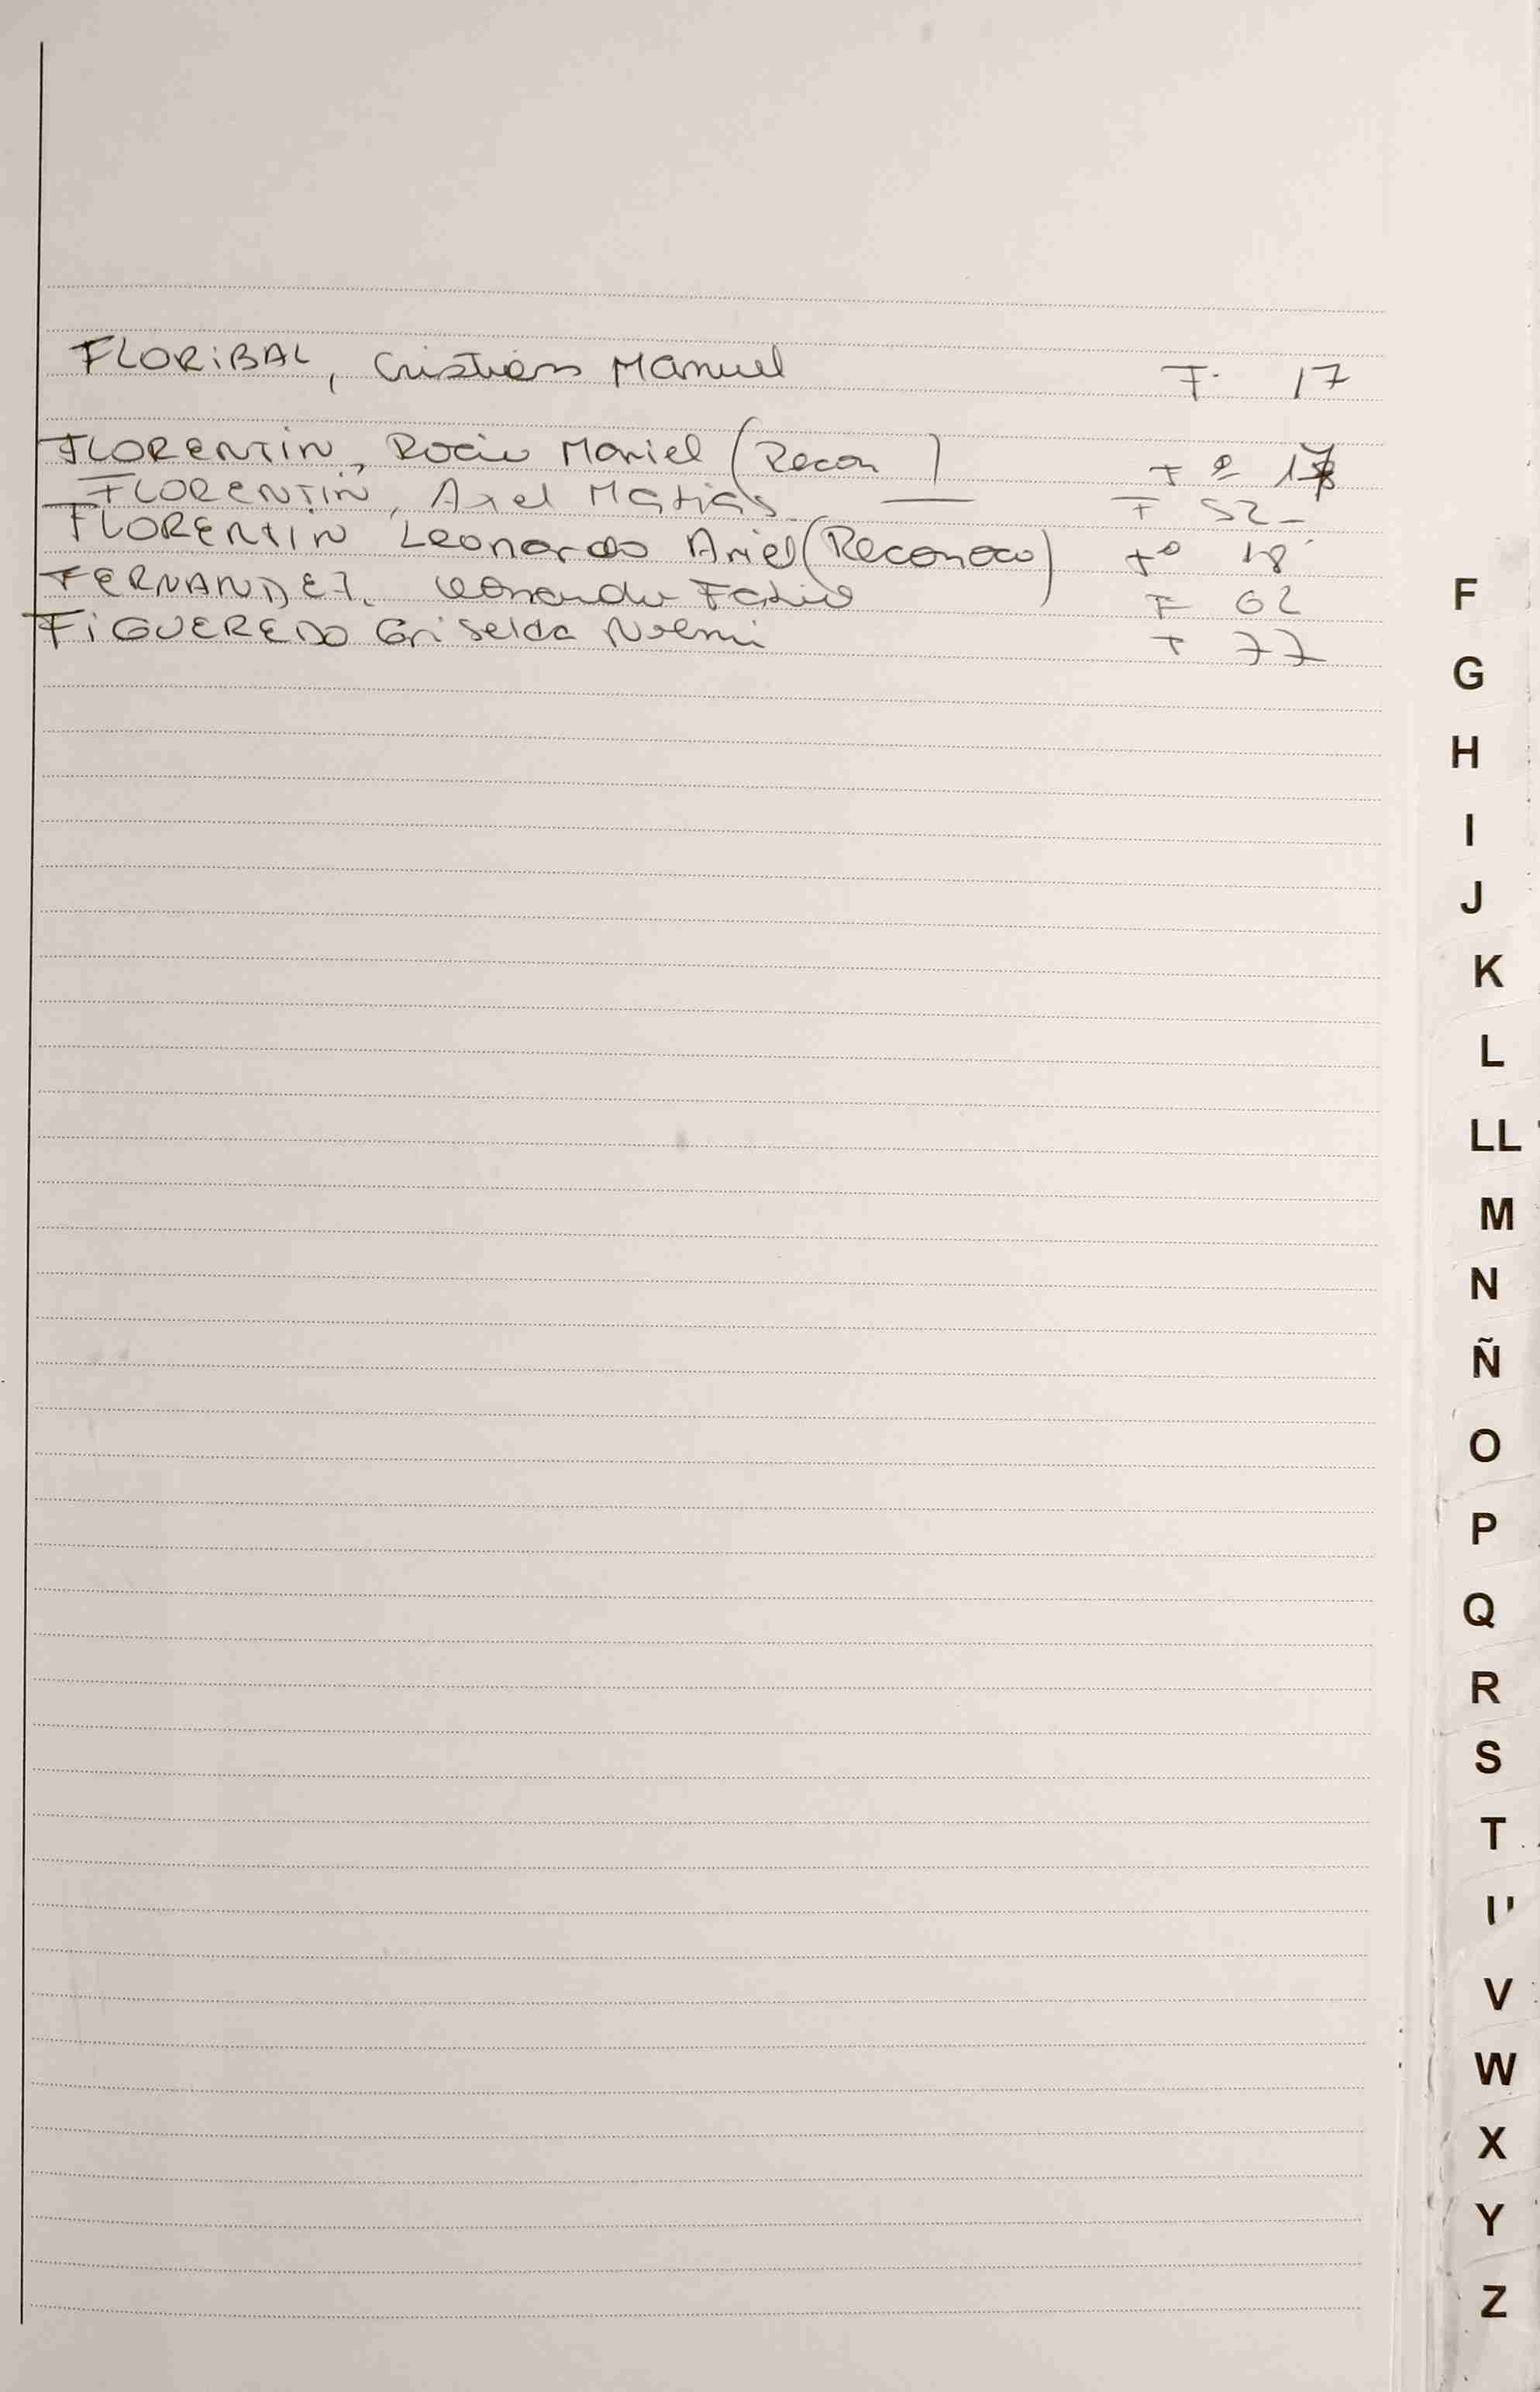 FLORIBAL, Cristian Manuel F. 17
FLORENTIN, Rocio Mariel (Recon ) Fº
FLORENTIN, Axel Matias F 52-
FLORENTIN Leonardo Ariel (Reconoco) Fº 18
FERNANDEZ. Leonardo F 62
FIGUEREDO Griselda Noemi F 77
F
G
H
I
J
K
L
LL
M
N
Ñ
O
P
Q
R
S
T
U
V
W
X
Y
Z